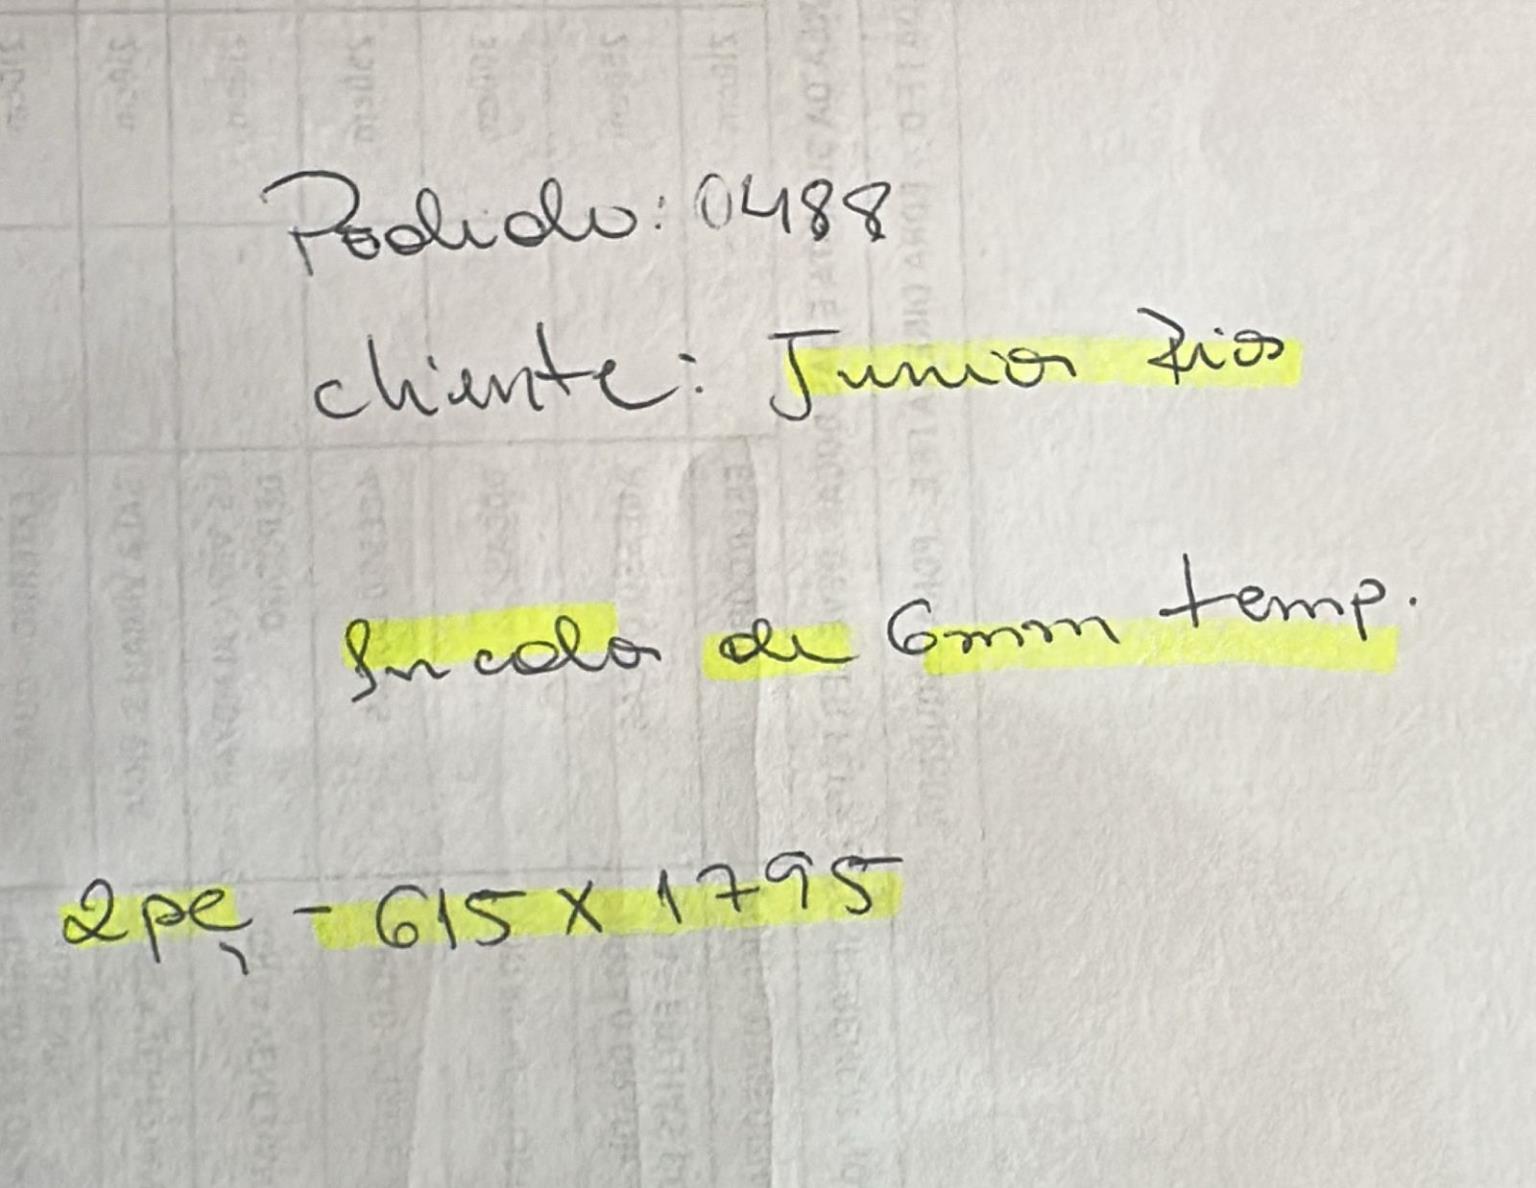 Pedido: 0488
cliente: Junior Rios
Incolor de 6mm temp.
2pç - 615 X 1795